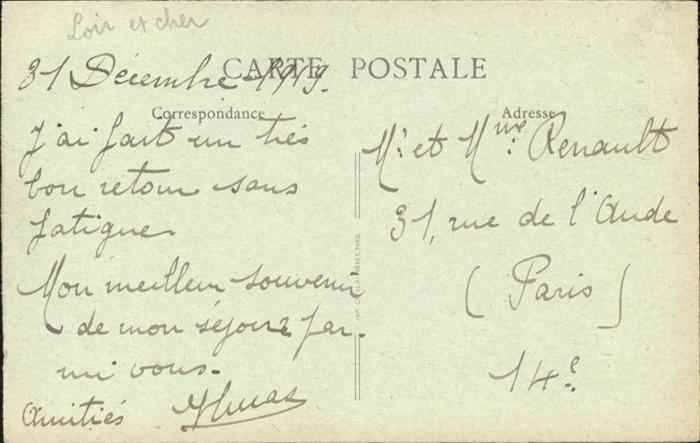 Loir et cher
CARTE POSTALE
31 Décembre 1919.
Correspondance
J'ai fait un très
bon retour sans
fatigue.
Mon meilleur souvenir
de mon séjour par-
mi vous.
Amitiés
Adresse
Mr. et Mme. Renault
31, rue de l'Aude
(Paris)
14e.